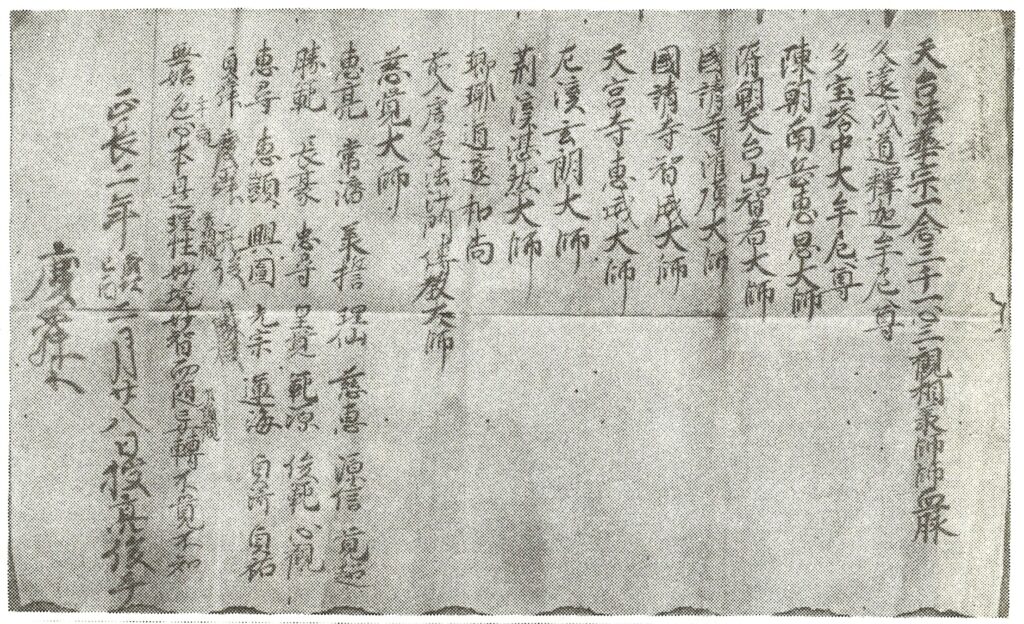 天台法華宗一念三千一心三觀相承師師血脉
久遠成道釋迦牟尼尊
多宝塔中大牟尼尊
陳朝南岳惠思大師
隋朝天台山智者大師
國請寺灌頂大師
國請寺智威大師
天宮寺惠威大師
左溪玄朗大師
荊溪湛然大師
瑯琊道邃和尚
前入唐受法沙門傳教大師
慈覚大師
惠亮 常濟 承 理仙 慈惠 源信 覚超
勝範 長豪 忠尋 皇覚 範源 俊範 心觀
惠尋 惠顗 興圓 光宗 運海 貞済 貞祐
貞舜 慶舜
無始色心本是理性妙境妙智而隨妄轉不覚不知
正長二年 二月廿八日授真俊了
慶舜